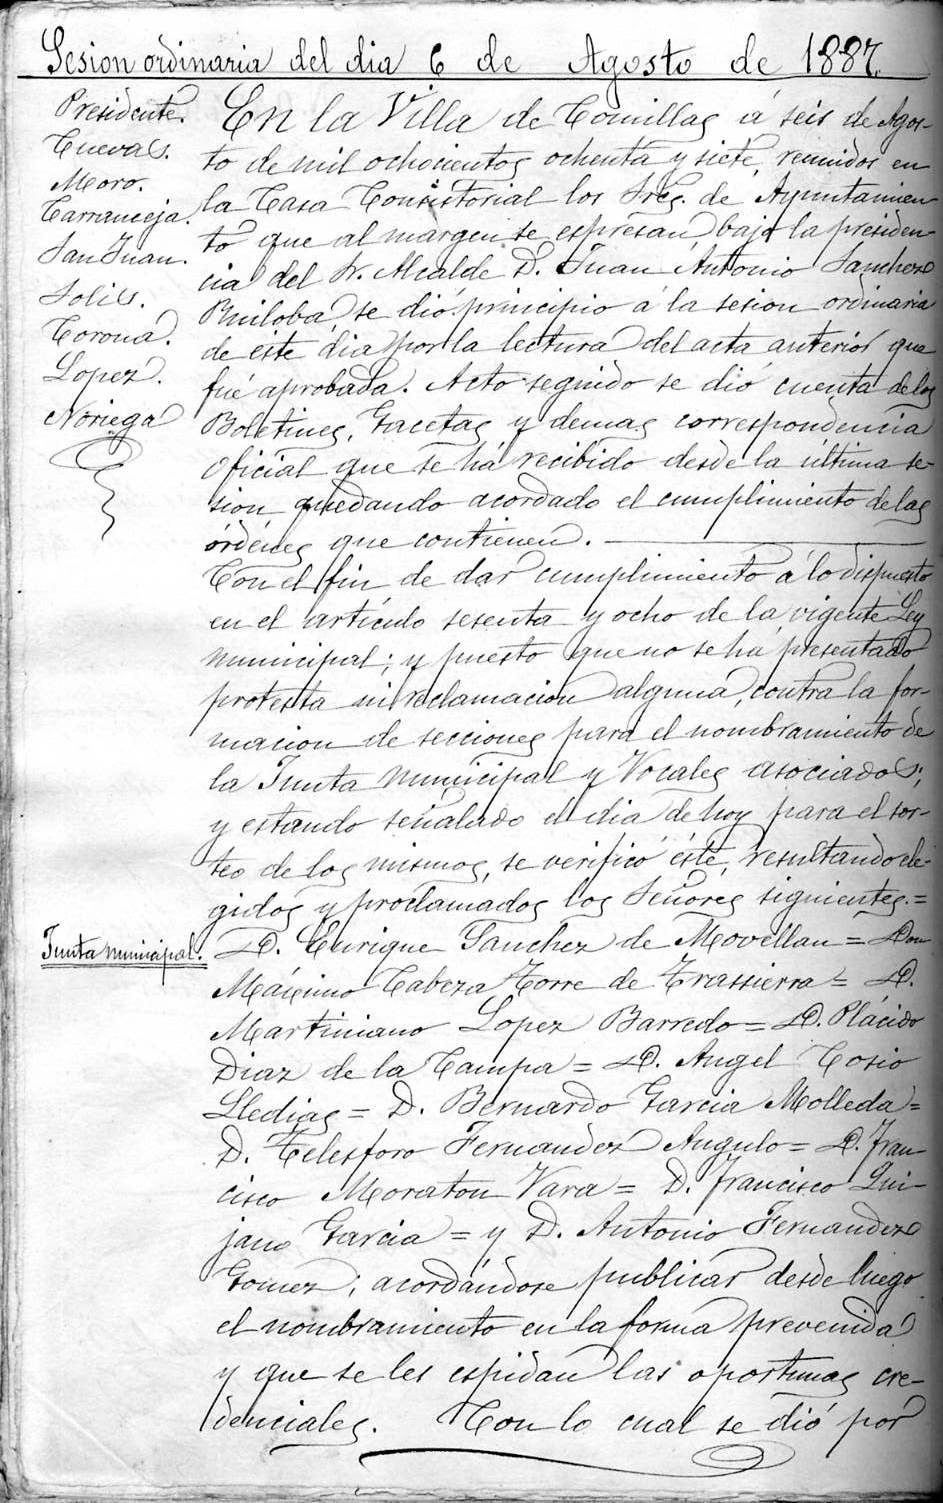 Sesion ordinaria del dia 6 de Agosto de 1887.
Presidente.
Cuevas.
Moro.
Carranceja.
San Juan.
Solis.
Corona.
Lopez.
Noriega
En la Villa de Comillas á seis de Agos-
to de mil ochocientos ochenta y siete, reunidos en
la Casa Consistorial los Sres. de Ayuntamien-
to que al margen se espresan bajo la presiden-
cia del Sr. Alcalde D. Juan Antonio Sanchez
Ruiloba, se dió principio á la sesion ordinaria
de este dia por la lectura del acta anterior que
fué aprobada. Acto seguido se dió cuenta de los
Boletines, Gacetas y demas correspondencia
oficial que se há recibido desde la última se-
sion quedando acordado el cumplimiento de las
órdenes que contienen.
Con el fin de dar cumplimiento á lo dispuesto
en el artículo sesenta y ocho de la vigente Ley
municipal; y puesto que no se há presentado
protesta ni reclamacion alguna, contra la for-
macion de secciones para el nombramiento de
la Junta municipal y Vocales asociados;
y estando señalado el dia de hoy para el sor-
teo de los mismos, se verificó éste, resultando ele-
gidos y proclamados los Señores siguientes.=
Junta municipal.
D. Enrique Sanchez de Movellan = Don
Máximo Cabeza Torre de Trassierra = D.
Martiniano Lopez Barredo = D. Plácido
Diaz de la Campa = D. Angel Cosio
Lledias = D. Bernardo Garcia Molleda =
D. Telesforo Fernandez Angulo = D. Fran-
cisco Moraton Vara = D. Francisco Qui-
jano Garcia = y D. Antonio Fernandez
Gomez; acordándose publicar desde luego
el nombramiento en la forma prevenida
y que se les espidan las oportunas cre-
denciales. Con lo cual se dió por